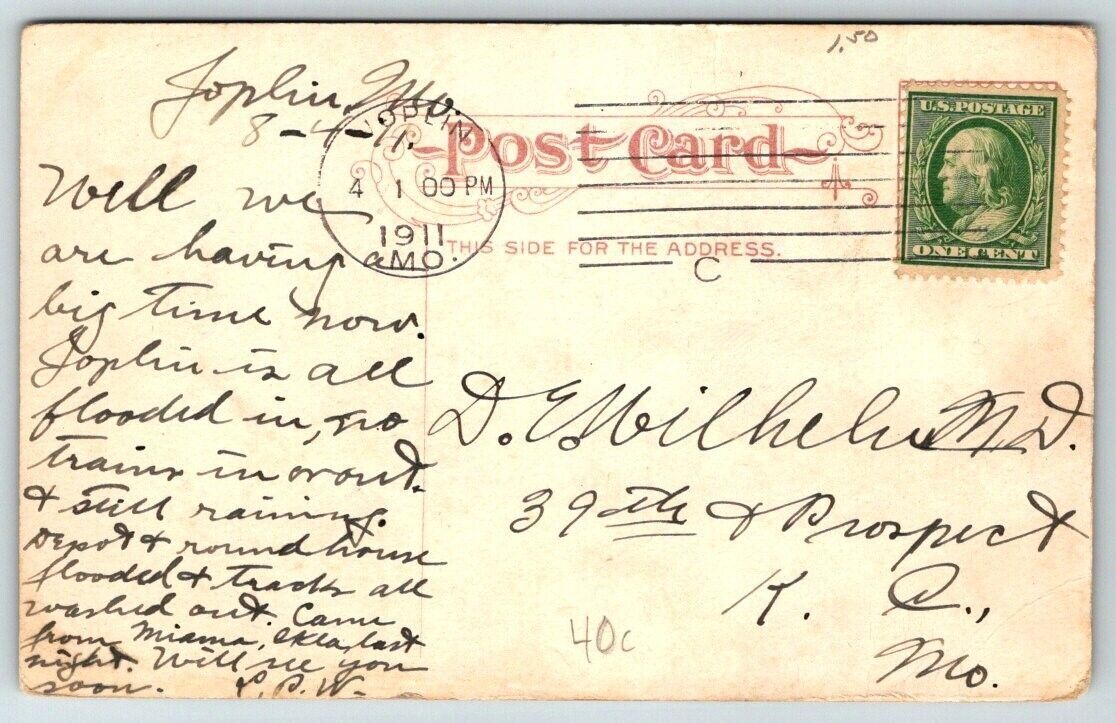 1.50
Joplin, Mo.
8-4-11.
Well we
are having a
big time now.
Joplin is all
flooded in, no
trains in or out.
& still raining.
Depot & round house
flooded & tracks all
washed out. Came
from Miama, Okla, last
night. Will see you
soon. P.P.W.
JOPLIN
4 1 00 PM
1911
MO.
C
Post Card
THIS SIDE FOR THE ADDRESS.
U.S. POSTAGE
ONE CENT
D. E. Wilhelm M.D.
39th & Prospect
K. C.,
Mo.
40c